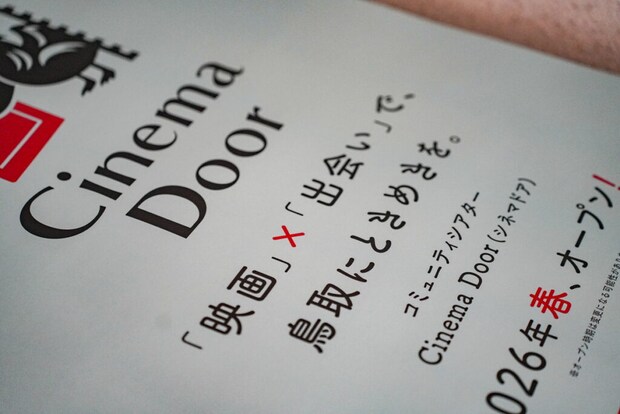 Cinema
Door
「映画」×「出会い」で、
鳥取にときめきを。
コミュニティシアター
Cinema Door(シネマドア)
026年春、オープン!
※オープン時期は変更になる可能性があり